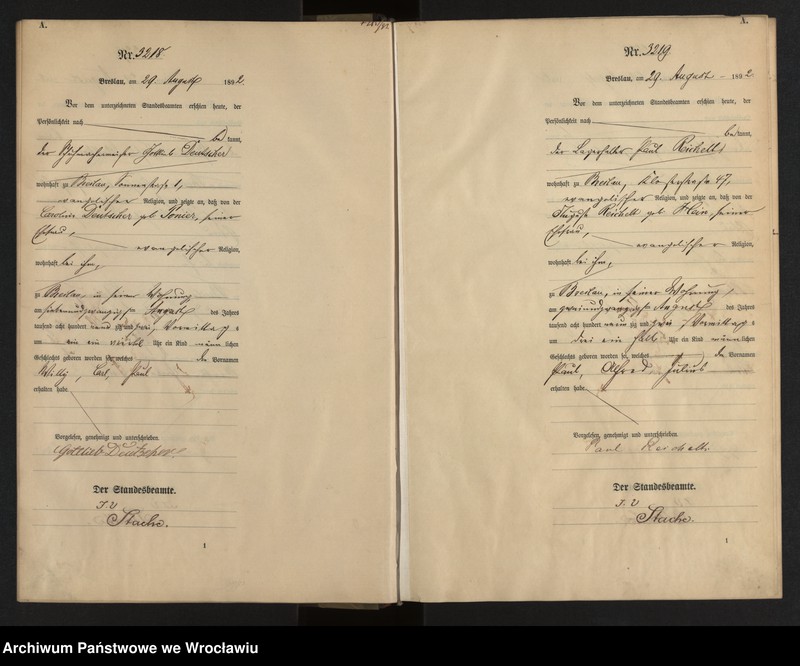 A.
Nr. 3218
Breslau, am 29. August 1892.
Vor dem unterzeichneten Standesbeamten erschien heute, der
Persönlichkeit nach
bekannt,
der Gottlieb Deutscher
wohnhaft zu Breslau, 1,
evangelischer Religion, und zeigte an, daß von der
Caroline Deutscher geb. seiner
Ehefrau,
evangelischer Religion,
wohnhaft bei ihm,
zu Breslau, in seiner Wohnung
am siebenundzwanzigsten August des Jahres
tausend acht hundert neunzig und zwei, Vormittags
um ein viertel Uhr ein Kind männlichen
Geschlechts geboren worden sei, welches den Vornamen
Willy, Carl, Paul
erhalten habe.
Vorgelesen, genehmigt und unterschrieben
Gottlieb Deutscher.
Der Standesbeamte.
I. V.
Stache.
1
A.
Nr. 3219
Breslau, am 29. August 1892.
Vor dem unterzeichneten Standesbeamten erschien heute, der
Persönlichkeit nach
bekannt,
der Lagerhalter Paul Reichelt
wohnhaft zu Breslau, 47,
evangelischer Religion, und zeigte an, daß von der
Reichelt geb. Hein, seiner
Ehefrau,
evangelischer Religion,
wohnhaft bei ihm,
zu Breslau, in seiner Wohnung
am zweiundzwanzigsten August des Jahres
tausend acht hundert neunzig und zwei, Vormittags
um drei ein halb Uhr ein Kind männlichen
Geschlechts geboren worden sei, welches den Vornamen
Paul, Alfred Julius
erhalten habe.
Vorgelesen, genehmigt und unterschrieben
Paul Reichelt.
Der Standesbeamte.
I. V.
Stache.
1
Archiwum Państwowe we Wrocławiu